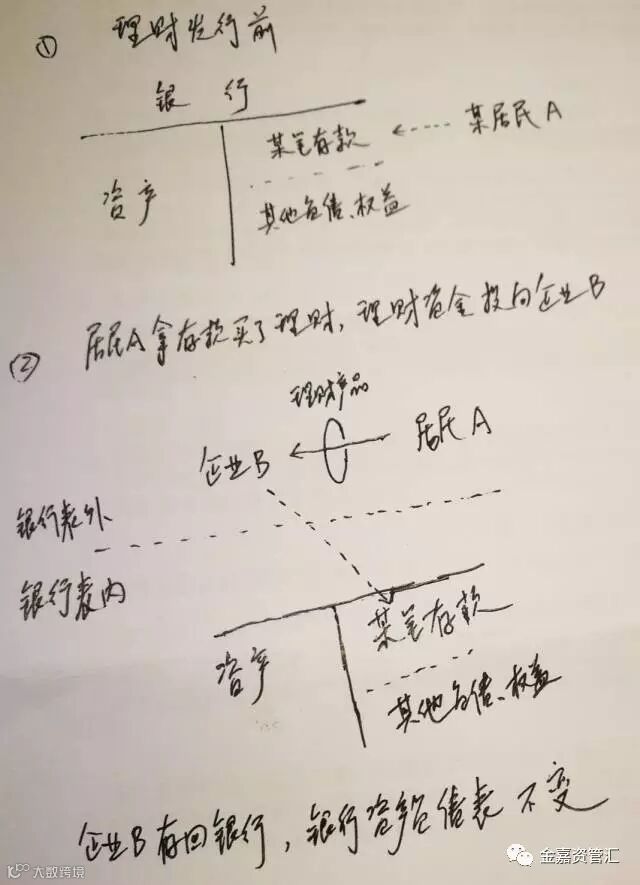 ① 理财发行前
银行
某笔存款 某居民A
资产
其他负债、权益
② 居民A拿存款买了理财，理财资金投向企业B
理财产品
企业B 居民A
银行表外
银行表内
某笔存款
资产
其他负债、权益
企业B存回银行，银行资产负债表不变
大数跨境
金嘉资管汇